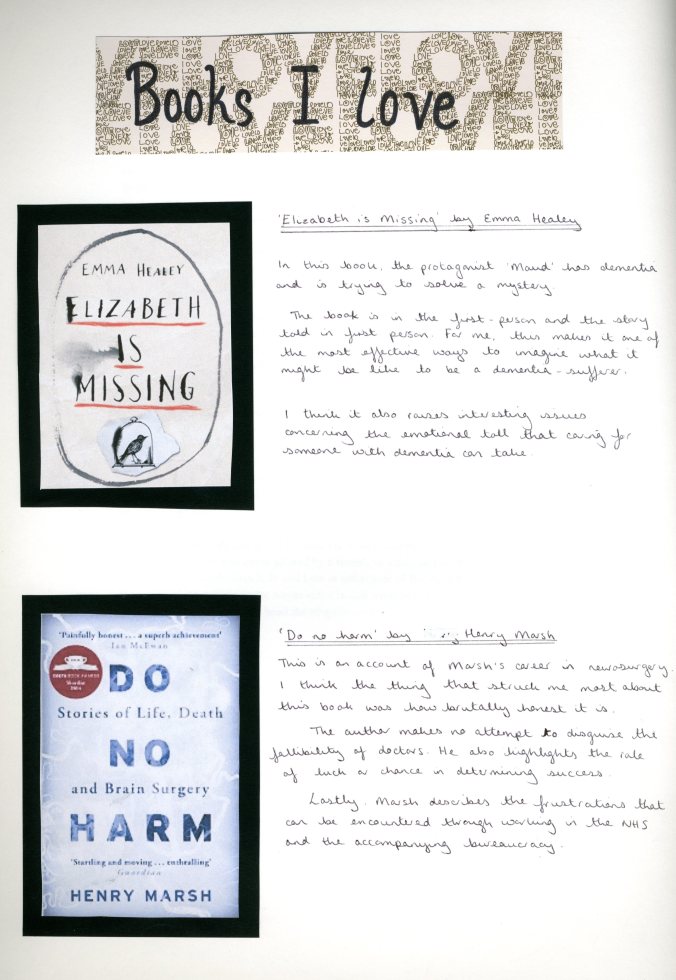 Books I love
'Elizabeth is Missing' by Emma Healey
In this book, the protaganist 'Maud' has dementia
and is trying to solve a mystery
The book is in the first-person and the story
told in first person. For me, this makes it one of
the most effective ways to imagine what it
might be like to be a dementia-sufferer.
I think it also raises interesting issues
concerning the emotional toll that caring for
someone with dementia can take.
EMMA HEALEY
ELIZABETH
IS
MISSING
'Do no harm' by Henry Marsh
This is an account of Marsh's career in neurosurgery.
I think the thing that struck me most about
this book was how brutally honest it is.
The author makes no attempt to disguise the
fallibility of doctors. He also highlights the role
of luck or chance in determining success.
Lastly, Marsh describes the frustrations that
can be encountered through working in the NHS
and the accompanying bureaucracy.
'Painfully honest... a superb achievement'
Ian McEwan
DO
Stories of Life, Death
NO
and Brain Surgery
HARM
'Startling and moving... enthralling'
Guardian
HENRY MARSH